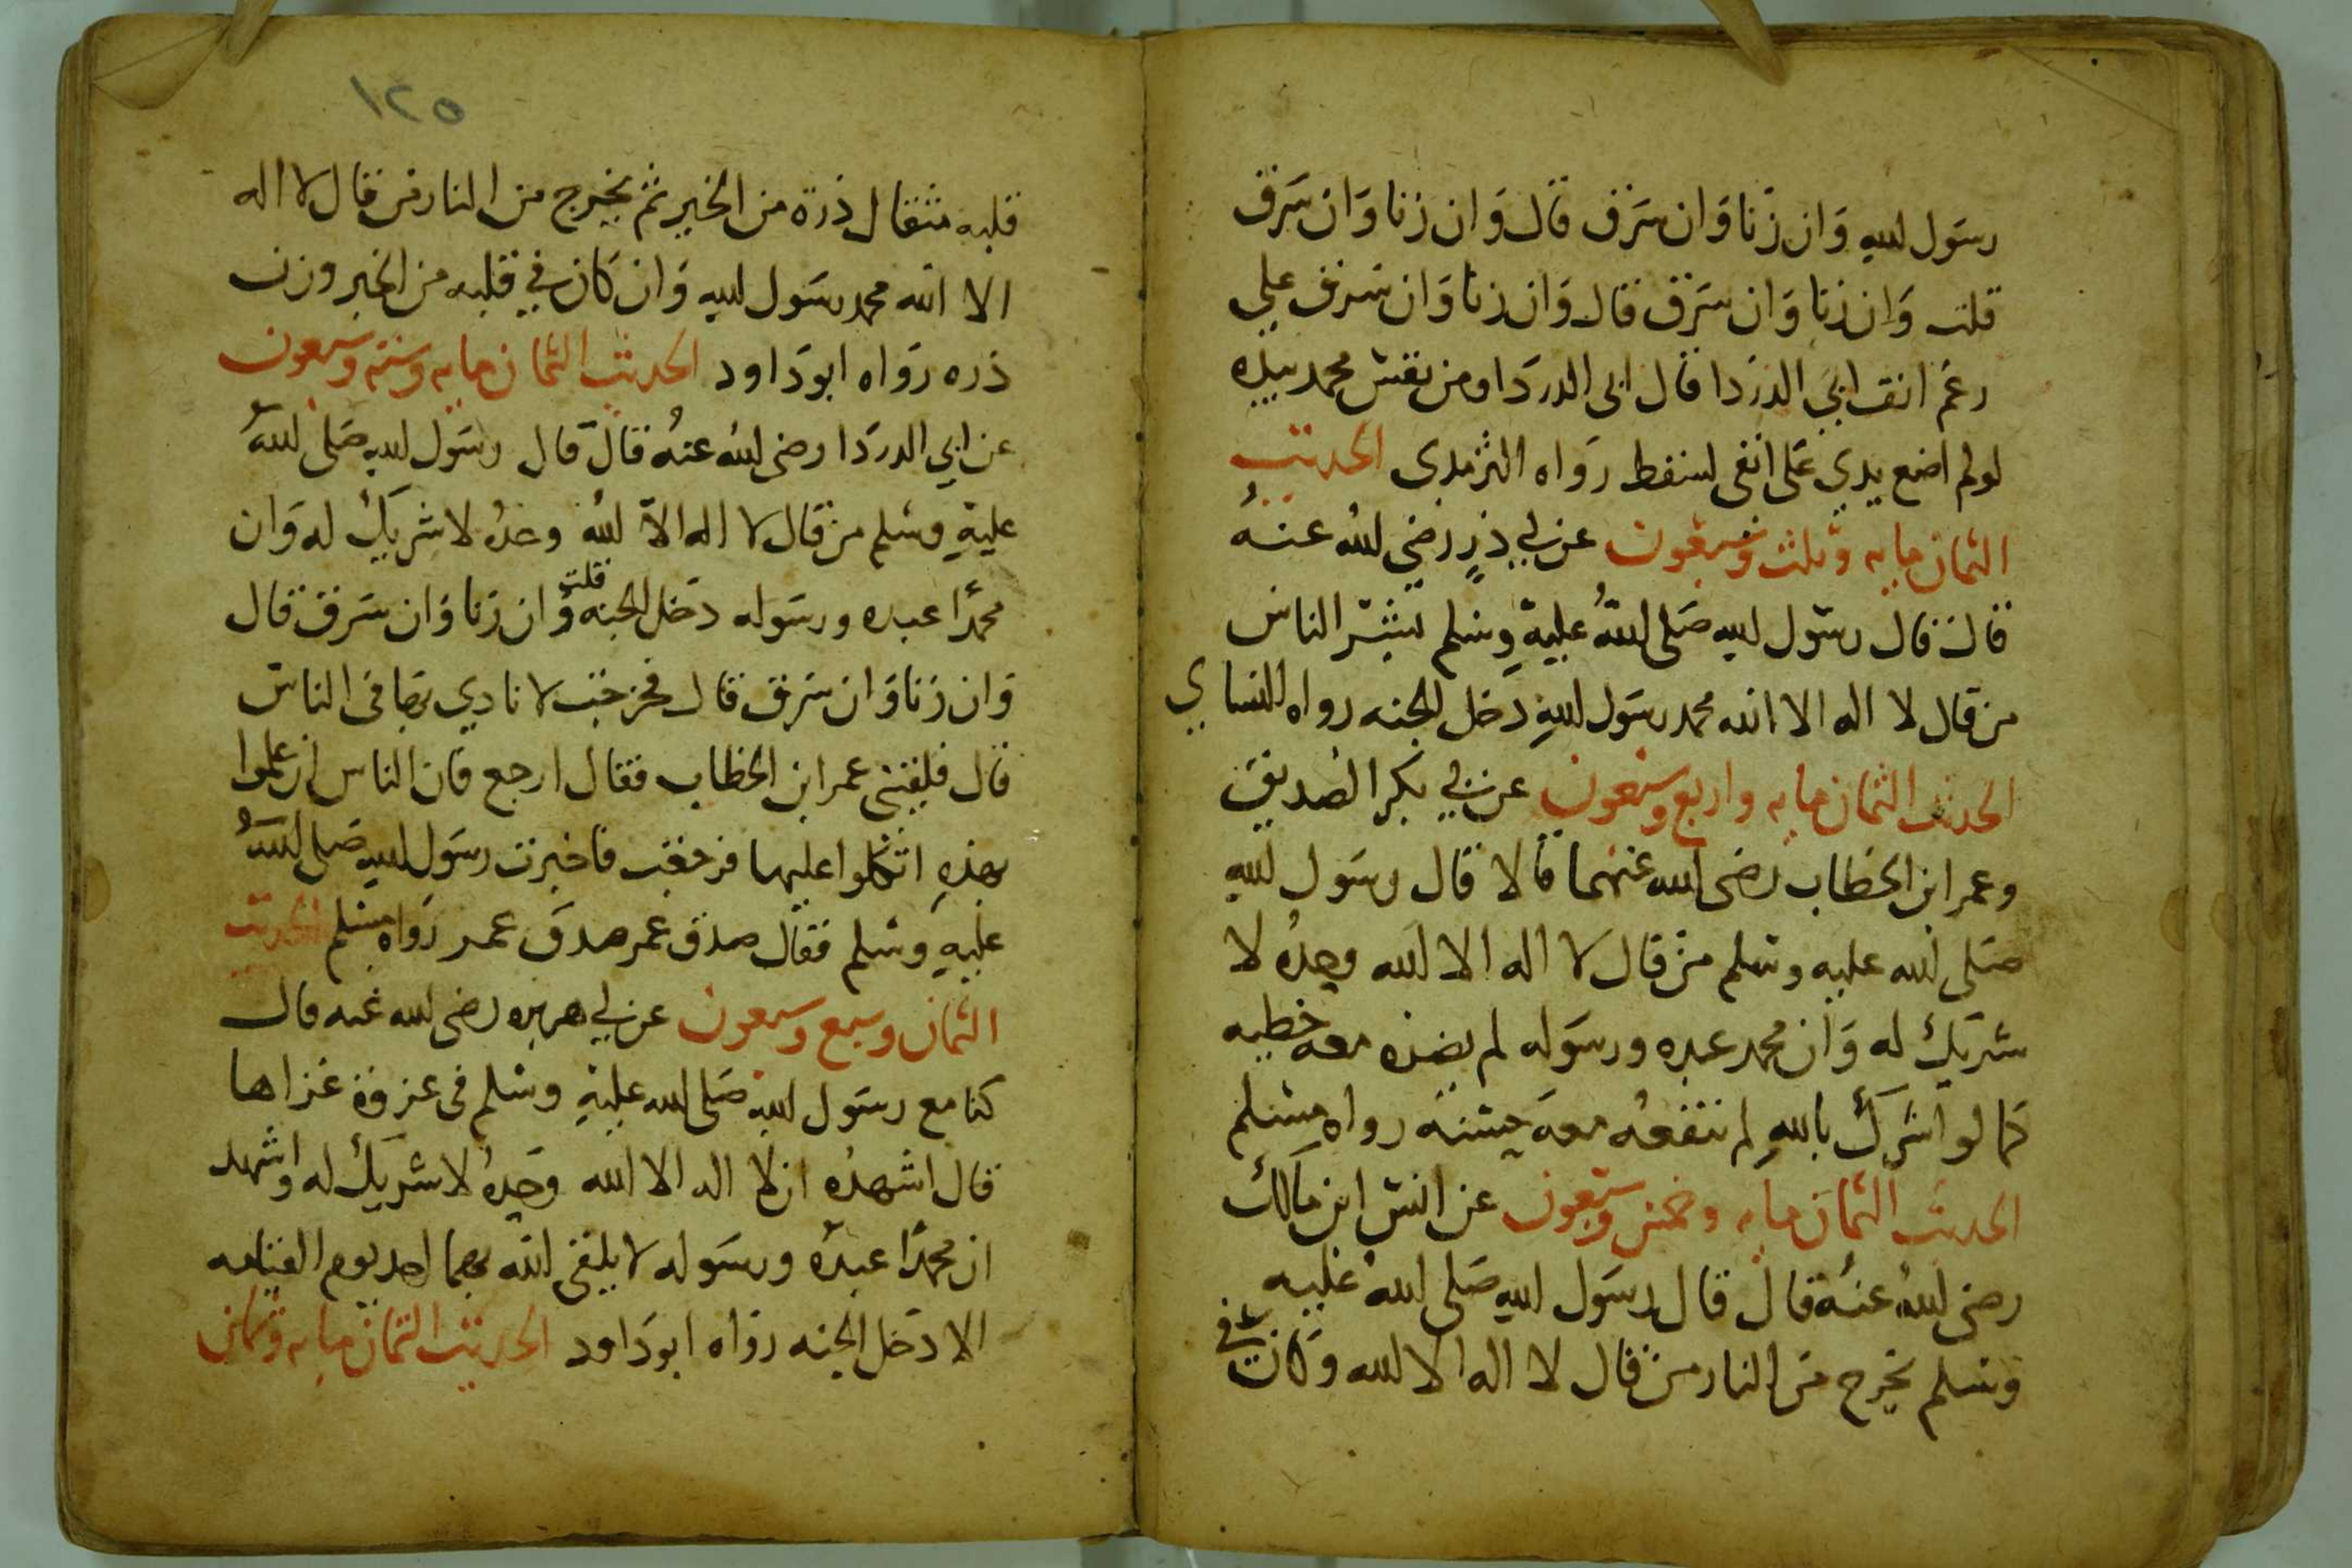 رسول الله وان زنا وان سرق قال وان زنا وان سرق
قلت وان زنا وان سرق قال وان زنا وان سرق علي
رغم انف ابي الدردا قال ابي الدردا ومن نفس محمد بيده
لولم اضع يدي على انفى لسقط رواه الترمدى الحديث
الثمان مايه وثلث وسبعون عن ابي ذر رضي الله عنه
قال قال رسول الله صلى الله عليه وسلم بشر الناس
من قال لا اله الا الله محمد رسول الله دخل الجنه رواه النساي
الحديث الثمان مايه واربع وسبعون عن ابي بكر الصديق
وعمر ابن الخطاب رضى الله عنهما قالا قال رسول الله
صلى الله عليه وسلم من قال لا اله الا الله وحده لا
شريك له وان محمد عبده ورسوله لم يضره معه خطيه
كما لو اشرك بالله لم تنفعه معه حسنه رواه مسلم
الحديث الثمان مايه وخمس وسبعون عن انس ابن مالك
رضى الله عنه قال قال رسول الله صلى الله عليه
وسلم يخرج من النار من قال لا اله الا الله وكان في
١٢٥
قلبه مثقال ذرة من الخير ثم يخرج من النار من قال لا اله
الا الله محمد رسول الله وان كان في قلبه من الخير وزن
ذره رواه ابو داود الحديث الثمان مايه وسته وسبعون
عن ابي الدردا رضى الله عنه قال قال رسول الله صلى الله
عليه وسلم من قال لا اله الا الله وحده لا شريك له وان
محمدا عبده ورسوله دخل الجنه قلت وان زنا وان سرق قال
وان زنا وان سرق قال فخرجت لانادي بها فى الناس
قال فلقيني عمر ابن الخطاب فقال ارجع فان الناس ان علموا
بهذه اتكلوا عليها فرجعت فاخبرت رسول الله صلى الله
عليه وسلم فقال صدق عمر صدق عمر رواه مسلم الحديث
الثمان وسبع وسبعون عن ابي هريره رضى الله عنه قال
كنا مع رسول الله صلى الله عليه وسلم فى غزوة غزاها
قال اشهده ان لا اله الا الله وحده لا شريك له واشهد
ان محمدا عبده ورسوله لا يلقى الله بهما احد يوم القيامه
الا دخل الجنه رواه ابو داود الحديث الثمان مايه وثمان